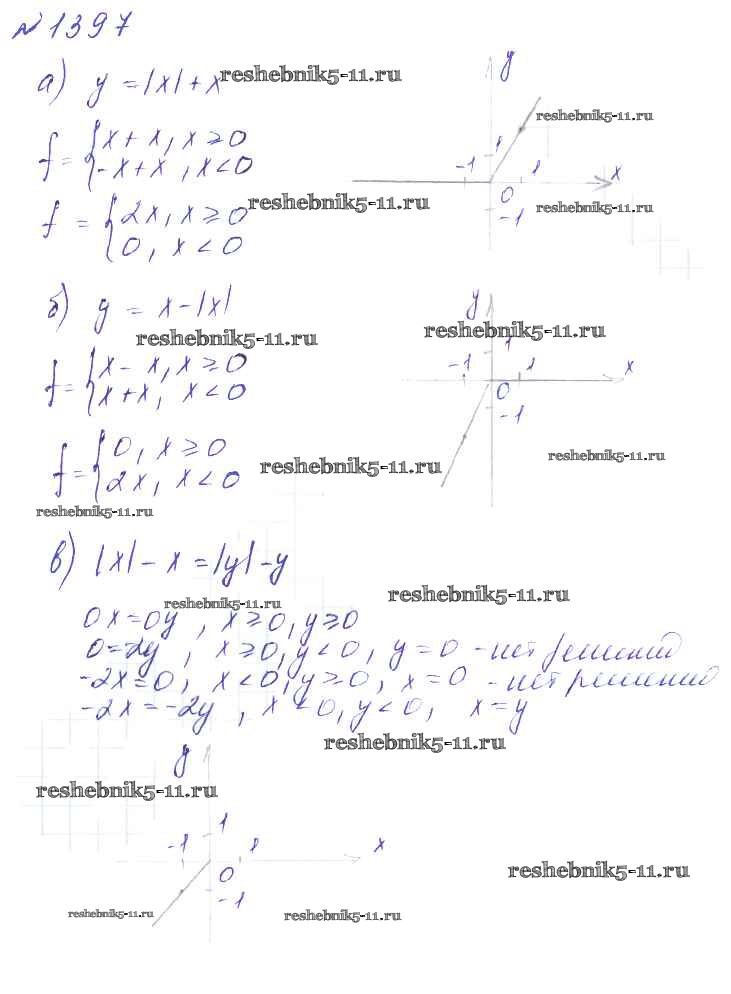 №1397
а) y = |x| + x
resheshnik5-11.ru
f = { x + x, x ≥ 0
-x + x, x < 0
f = { 2x, x ≥ 0
0, x < 0
reshebnik5-11.ru
y
reshebnik5-11.ru
1
-1
1
x
0
-1
reshebnik5-11.ru
б) y = x - |x|
reshebnik5-11.ru
f = { x - x, x ≥ 0
x + x, x < 0
f = { 0, x ≥ 0
2x, x < 0
reshebnik5-11.ru
reshebnik5-11.ru
y
reshebnik5-11.ru
1
-1
1
x
0
-1
reshebnik5-11.ru
в) |x| - x = |y| - y
reshebnik5-11.ru
reshebnik5-11.ru
0x = 0y, x ≥ 0, y ≥ 0
0 = -2y, x ≥ 0, y < 0, y = 0 - нет решений
-2x = 0, x < 0, y ≥ 0, x = 0 - нет решений
-2x = -2y, x < 0, y < 0, x = y
reshebnik5-11.ru
y
reshebnik5-11.ru
1
-1
1
x
0
-1
reshebnik5-11.ru
reshebnik5-11.ru
reshebnik5-11.ru